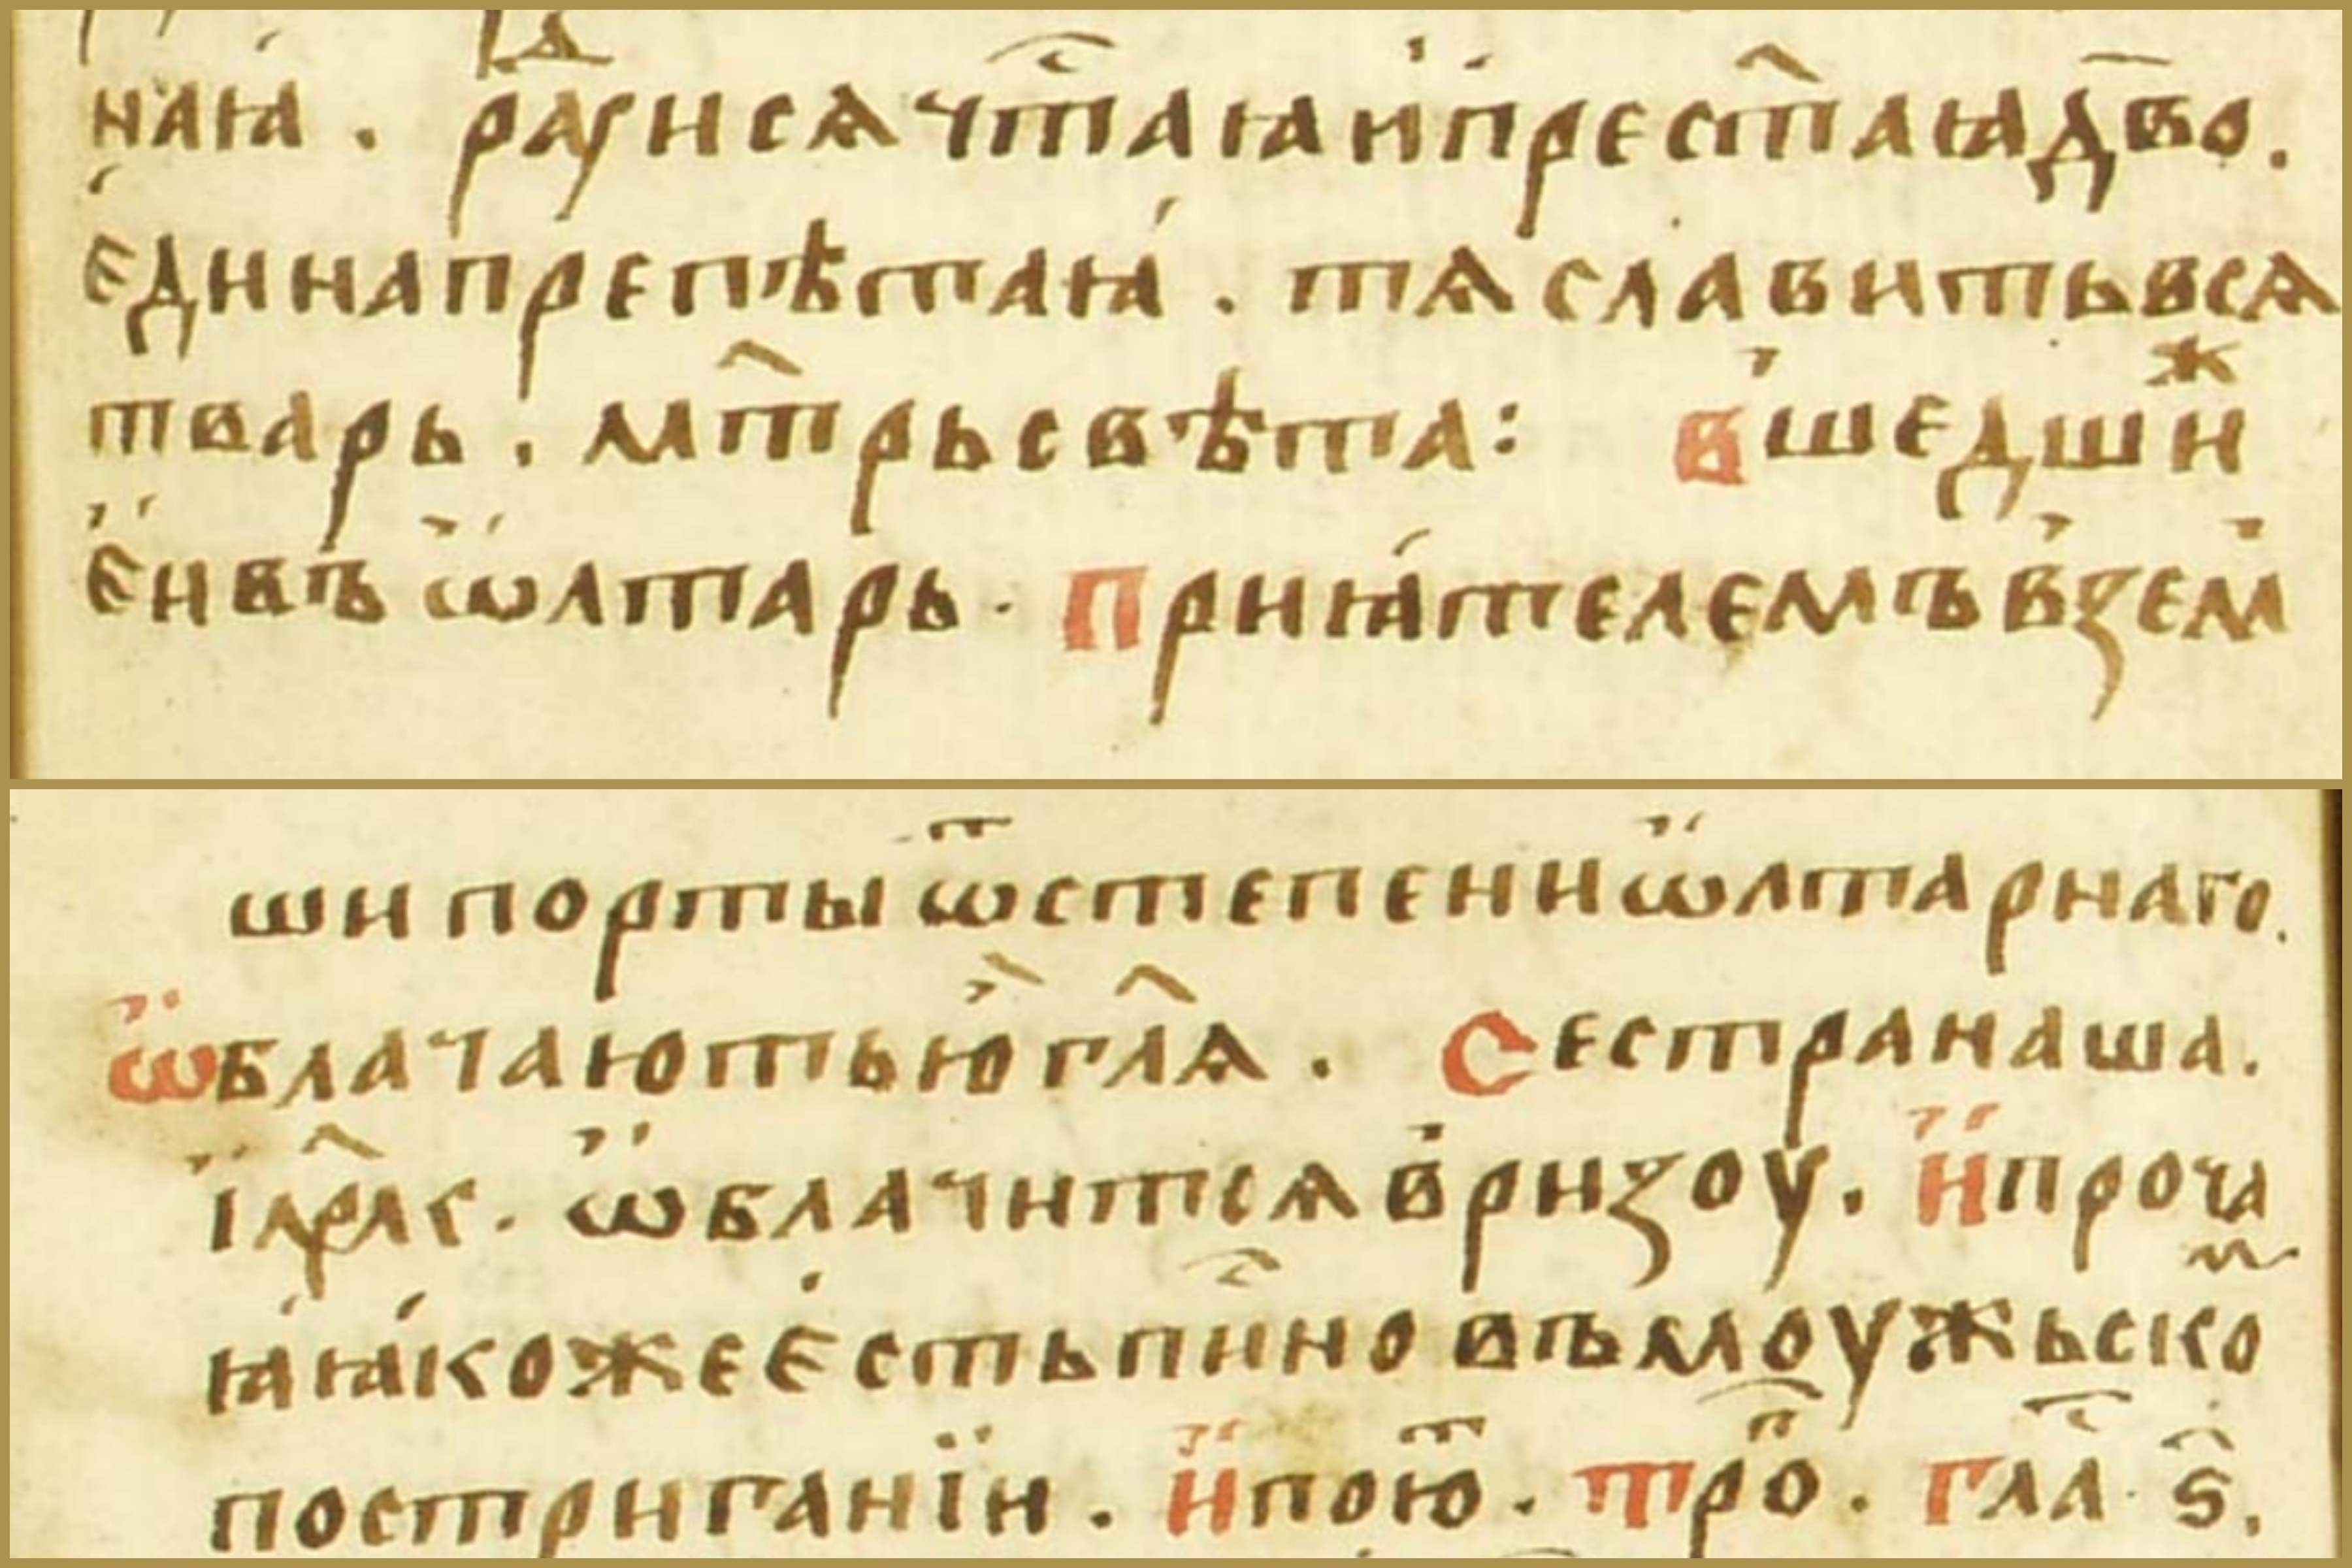 наꙗ . раꙋисѧ чⷭ҇таꙗ и прест҃аꙗ дв҃о .
єдина препѣтаꙗ . тѧ славить всѧ
тварь . мт҃рь свѣта : вшедшиⷤ
єи въ ѡлтарь · приꙗтелємъ вземъ
ши порты ѿ степени ѡлтарнаго .
ѡблачають ю гл҃ѧ . сестра наша .
їмрⷬ҇к · ѡблачитсѧ в ризоу . и проча
ꙗ ꙗкоже єсть пиⷭ҇но въ моужьскоⷨ
постриганїи . и поюⷮ . троⷫ҇ . глаⷭ҇ · ѕ҃ .